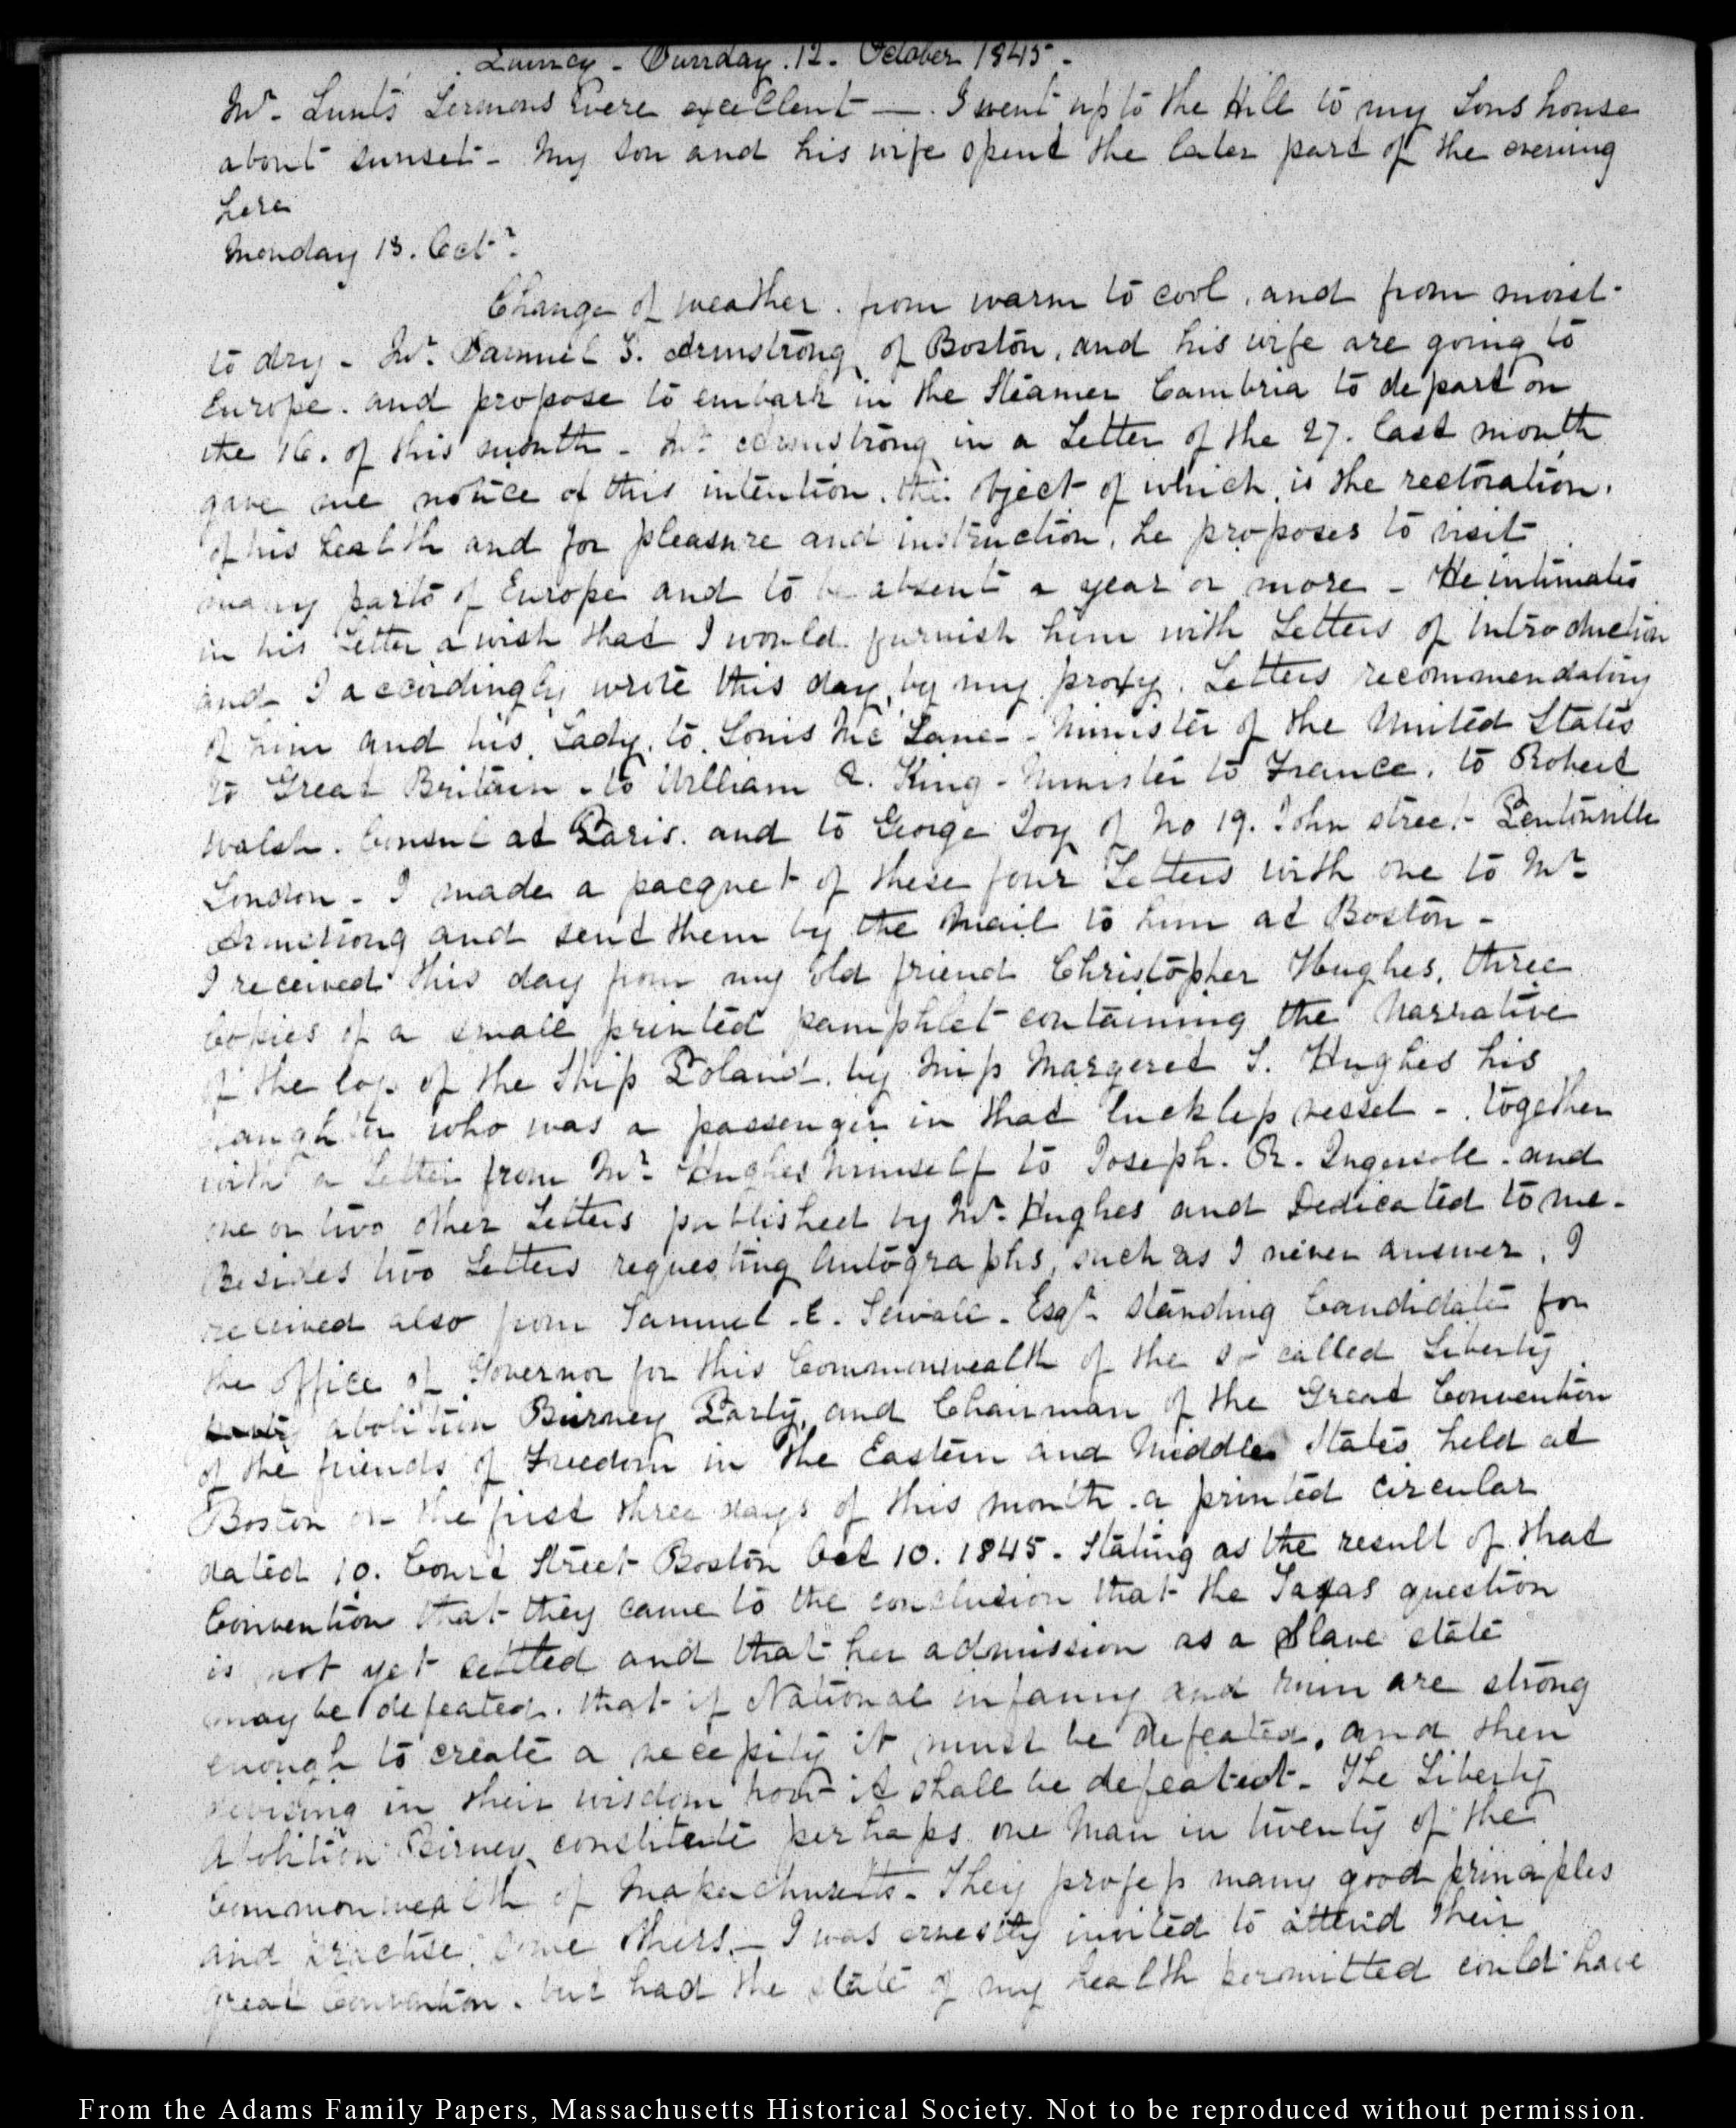 Quincy - Sunday. 12. October 1845 -
Mr. Lunt's Sermons were excellent — . I went up to the Hill to my Sons house
about sunset - My son and his wife spent the later part of the evening
here
Monday 13. Octr.
Change of weather. from warm to cool, and from moist
to dry - Mr. Samuel T. Armstrong of Boston, and his wife are going to
Europe. and propose to embark in the Steamer Cambria to depart on
the 16. of this month - Mr. Armstrong in a Letter of the 27. last month
gave me notice of this intention, the object of which, is the restoration.
of his health and for pleasure and instruction, he proposes to visit
many parts of Europe and to be absent a year or more - He intimates
in his Letter a wish that I would furnish him with Letters of Introduction
and I accordingly wrote this day, by my proxy. Letters recommendatory
of him and his Lady, to Louis Mc Lane - Minister of the United States
to Great Britain - to William R. King - Minister to France, to Robert
Walsh. Consul at Paris. and to George Joy of No 19. John street Pentonville
London - I made a pacquet of these four Letters with one to Mr.
Armstrong and sent them by the Mail to him at Boston -
I received this day from my old friend Christopher Hughes, three
Copies of a small printed pamphlet containing the Narrative
of the loss of the Ship Poland, by Miss Margeret S. Hughes his
daughter who was a passenger in that luckless vessel - together
with a Letter from Mr. Hughes himself to Joseph. R. Ingersoll. and
one or two other Letters published by Mr. Hughes and Dedicated to me -
Besides two Letters requesting Autographs, such as I never answer, I
received also from Samuel. E. Sewall - Esqr. standing Candidate for
the office of Governor for this Commonwealth of the so called Liberty
abolition Birney Party, and Chairman of the Great Convention
of the friends of Freedom in the Eastern and Middle States held at
Boston on the first three days of this month - a printed circular
dated 10. Court Street Boston Oct 10. 1845 - Stating as the result of that
Convention that they came to the conclusion that the Taxas question
is not yet settled and that her admission as a Slave state
may be defeated. that if National infamy and ruin are strong
enough to create a necessity it must be defeated, and then
devising in their wisdom how it shall be defeated - The Liberty
Abolition Birney constitute perhaps one Man in twenty of the
Commonwealth of Massachusetts - They profess many good principles
and practise some others. - I was ernestly invited to attend their
great Convention. but had the state of my health permitted could have
From the Adams Family Papers, Massachusetts Historical Society. Not to be reproduced without permission.